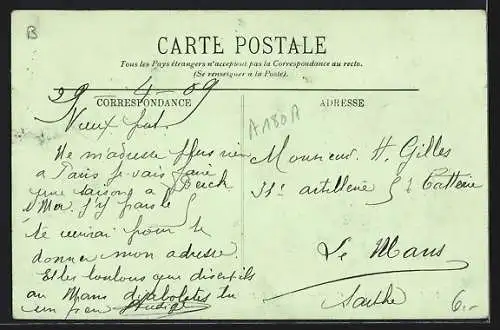 B
CARTE POSTALE
Tous les Pays étrangers n'acceptent pas la Correspondance au recto.
(Se renseigner a la Poste).
29 - 4 - 09
CORRESPONDANCE
Vieux
Ne m'adresse plus rien
a Paris je vais faire
une saison a Berck
s/Mer. j'y pars le
te pour te
donner mon adresse.
que
au Mans tu
un peu
A180A
ADRESSE
Monsieur. H. Gilles
31e artillerie Batterie
Le Mans
Sarthe
6.-